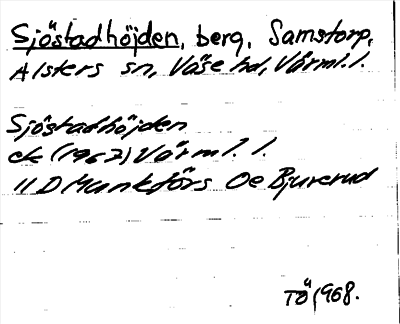 Sjöstadhöjden, berg, Samstorp,
Alsters sn, Väse hd, Värml. l.
Sjöstadhöjden
ek (1962) Värml. l.
11 D Munkfors Oe Bjurerud
TÖ 1968.